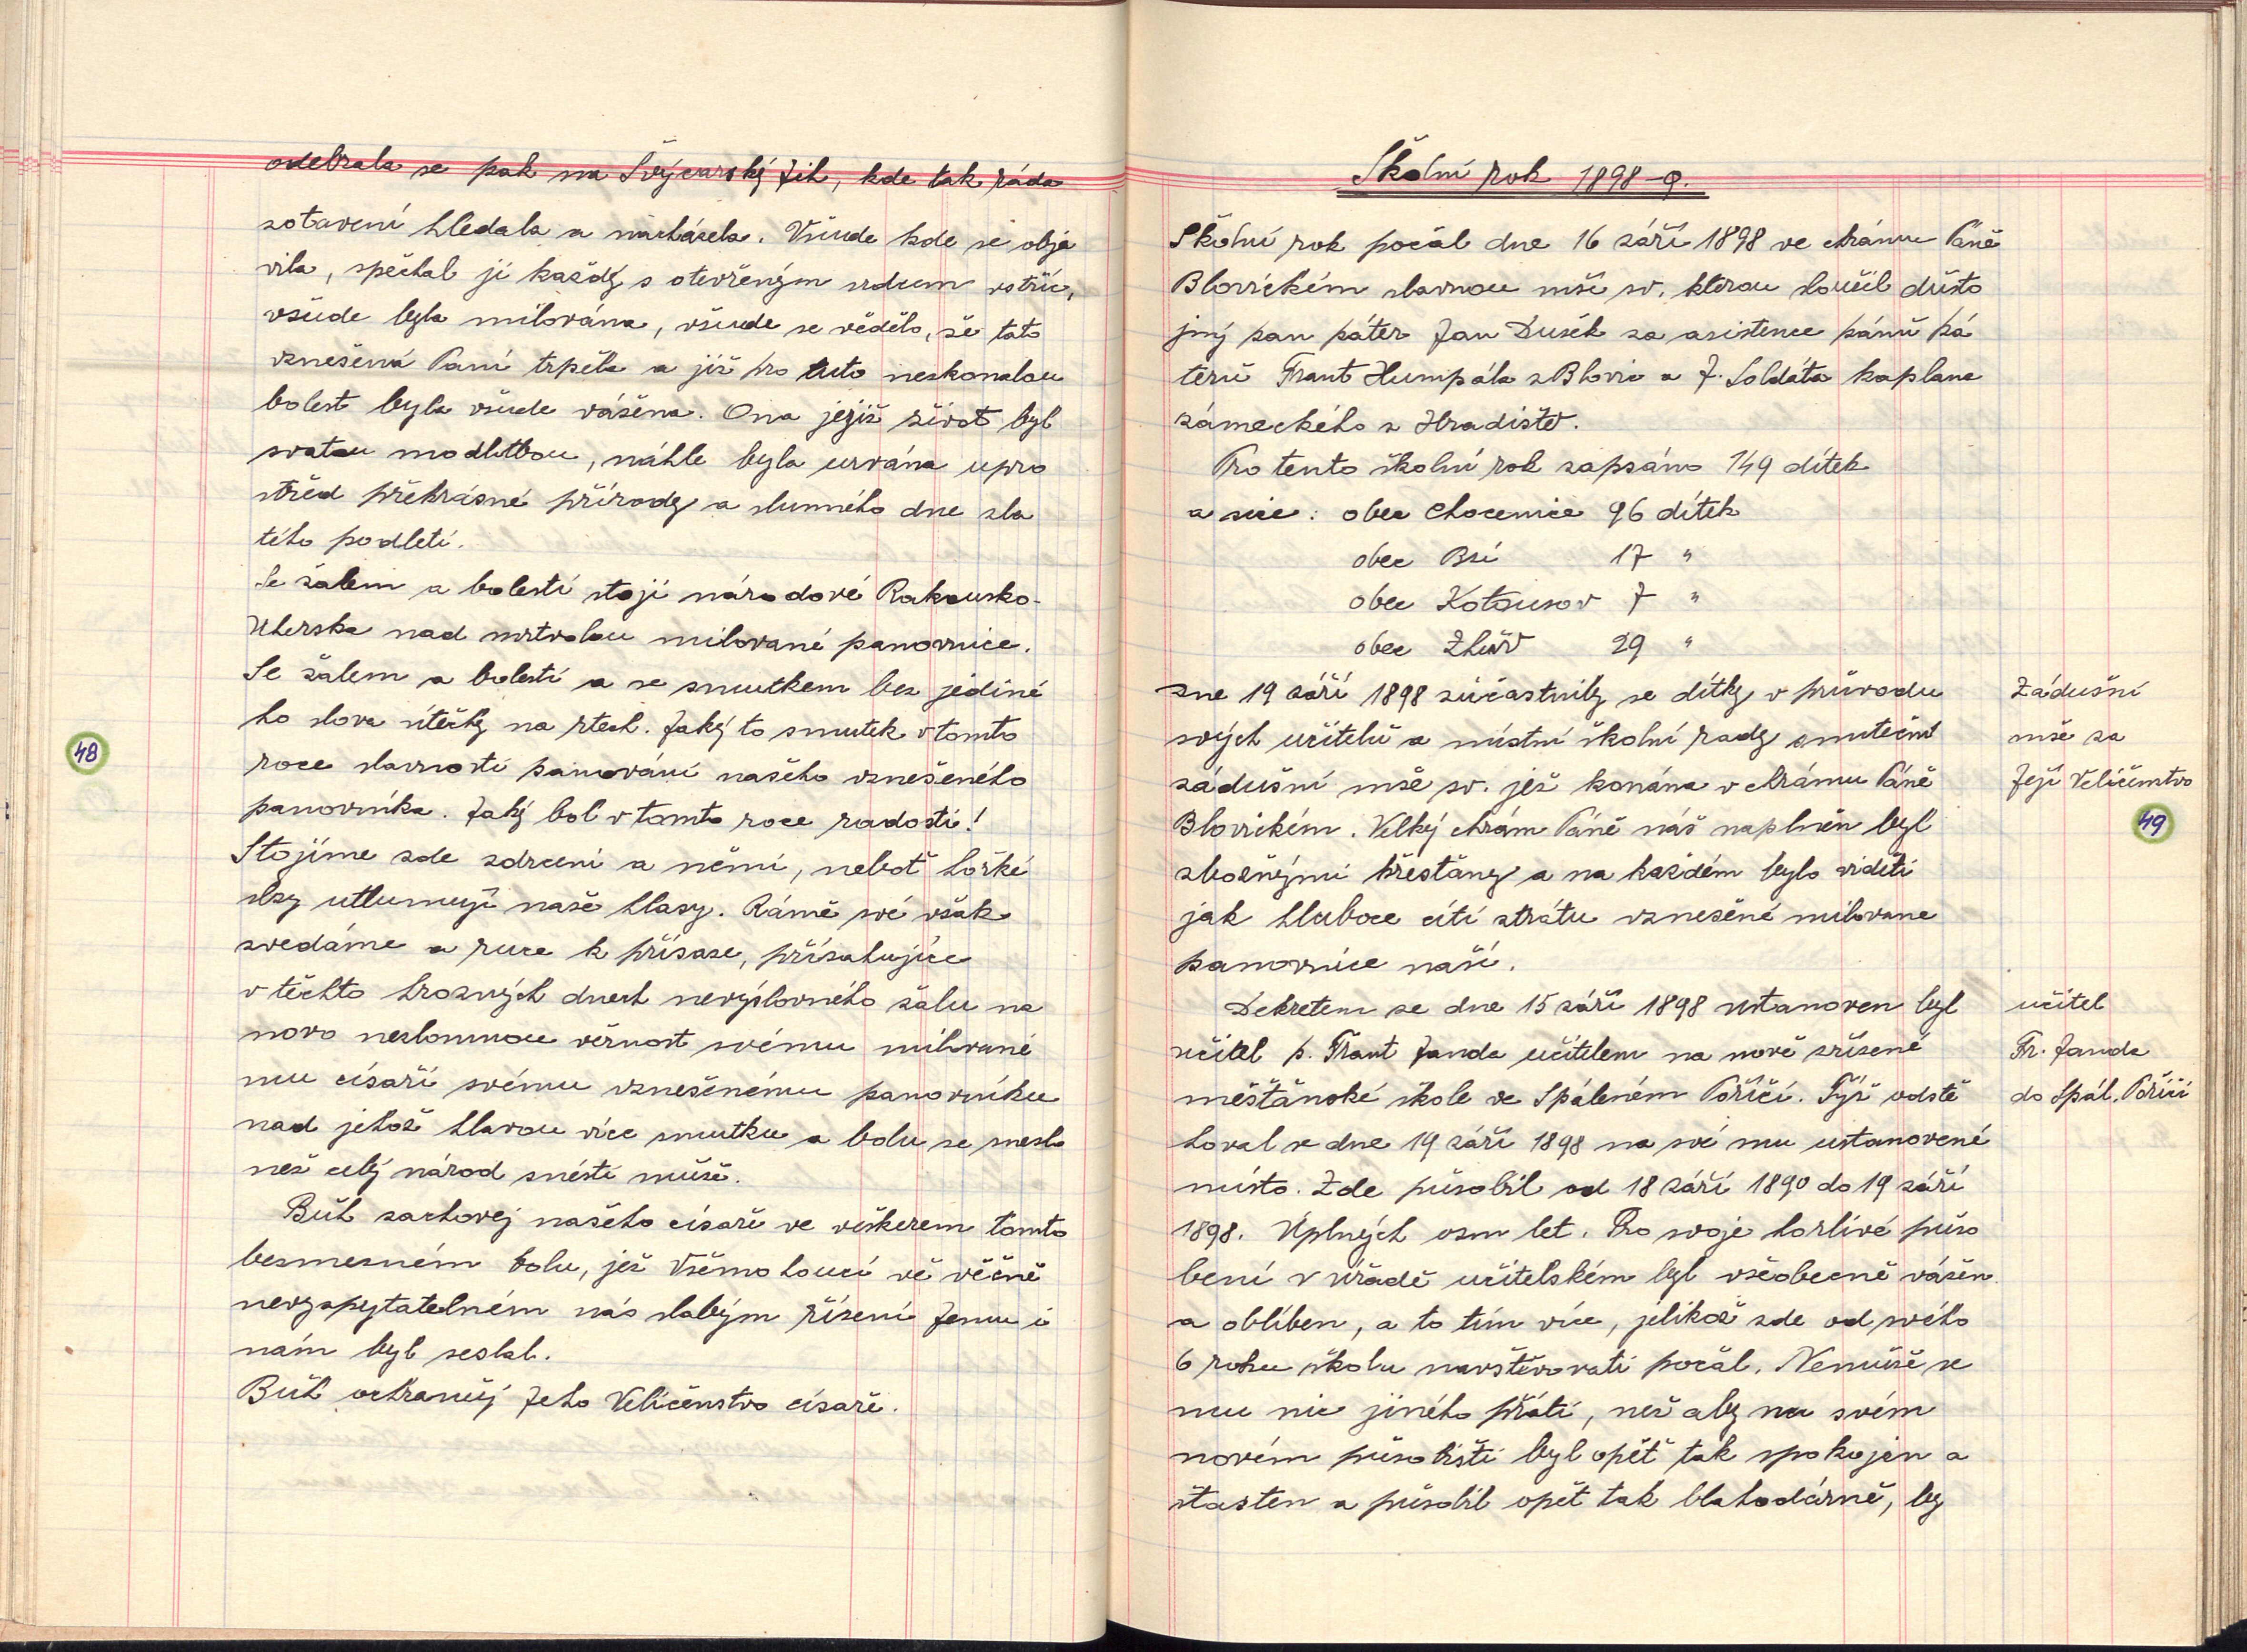 odebrala se pak na Švýcarský Jih, kde tak ráda
zotavení hledala a nacházela. Všude kde se obja
vila, spěchal jí každý s otevřeným srdcem vstříc,
všude byla milována, všude se vědělo, že tato
vznešená Paní trpěla a již pro tuto neskonalou
bolest byla všude vážena. Ona jejíž život byl
svatou modlitbou, náhle byla urvána upro
střed překrásné přírody a slunného dne zla
tého podletí.
Se žalem a bolestí stojí národové Rakousko-
Uherska nad mrtvolou milované panovnice.
Se žalem a bolestí a se smutkem bez jediné
ho slova útěchy na rtech. Jaký to smutek v tomto
roce slavnosti panování našeho vznešeného
panovníka. Jaký bol v tomto roce radosti!
Stojíme zde zdrceni a němi, neboť hořké
slzy utlumují naše hlasy. Rámě své však
zvedáme a ruce k přísaze, přísahajíce
v těchto hrozných dnech nevýslovného žalu na
novo neslomnou věrnost svému milované
mu císaři svému vznešenému panovníku
nad jehož hlavou více smutku a bolu se sneslo
než celý národ snésti může.
Bůh zachovej našeho císaře ve veškerem tomto
bezmezném bolu, jež Všemohoucí ve věčně
nevyzpytatelném nás slabým řízení Jemu i
nám byl seslal.
Bůh ochraňuj Jeho Veličenstvo císaře.
48
Školní rok 1898-9.
Školní rok počal dne 16 září 1898 ve chrámu Páně
Blovickém slavnou mší sv. kterou sloužil důsto
jný pan páter Jan Dušek za asistence pánů pá
terů Frant Humpála z Blovic a J. Soldáta kaplana
zámeckého z Hradiště.
Pro tento školní rok zapsáno 149 dítek
a sice: obec Chocenice 96 dítek
obec Bzí 17 "
obec Kotousov 7 "
obec Zhůř 29 "
Dne 19 září 1898 zúčastnily se dítky v průvodu
svých učitelů a místní školní rady smuteční
zádušní mše sv. jež konána v chrámu Páně
Blovickém. Velký chrám Páně náš naplněn byl
zbožnými křesťany a na každém bylo viděti
jak hluboce cítí ztrátu vznešené milovane
panovnice naší.
Zádušní
mše za
Její Veličenstvo
49
Dekretem ze dne 15 září 1898 ustanoven byl
učitel p. Frant Janda učitelem na nově zřízené
měšťanské škole ve Spáleném Poříčí. Týž odstě
hoval se dne 19 září 1898 na své mu ustanovené
místo. Zde působil od 18 září 1890 do 19 září
1898. Úplných osm let. Pro svoje horlivé půso
bení v úřadě učitelském byl všeobecně vážen
a oblíben, a to tím více, jelikož zde od svého
6 roku školu navštěvovati počal. Nemůže se
mu nic jiného přáti, než aby na svém
novém působišti byl opět tak spokojen a
šťasten a působil opět tak blahodárně, by
učitel
Fr. Janda
do Spál. Poříčí